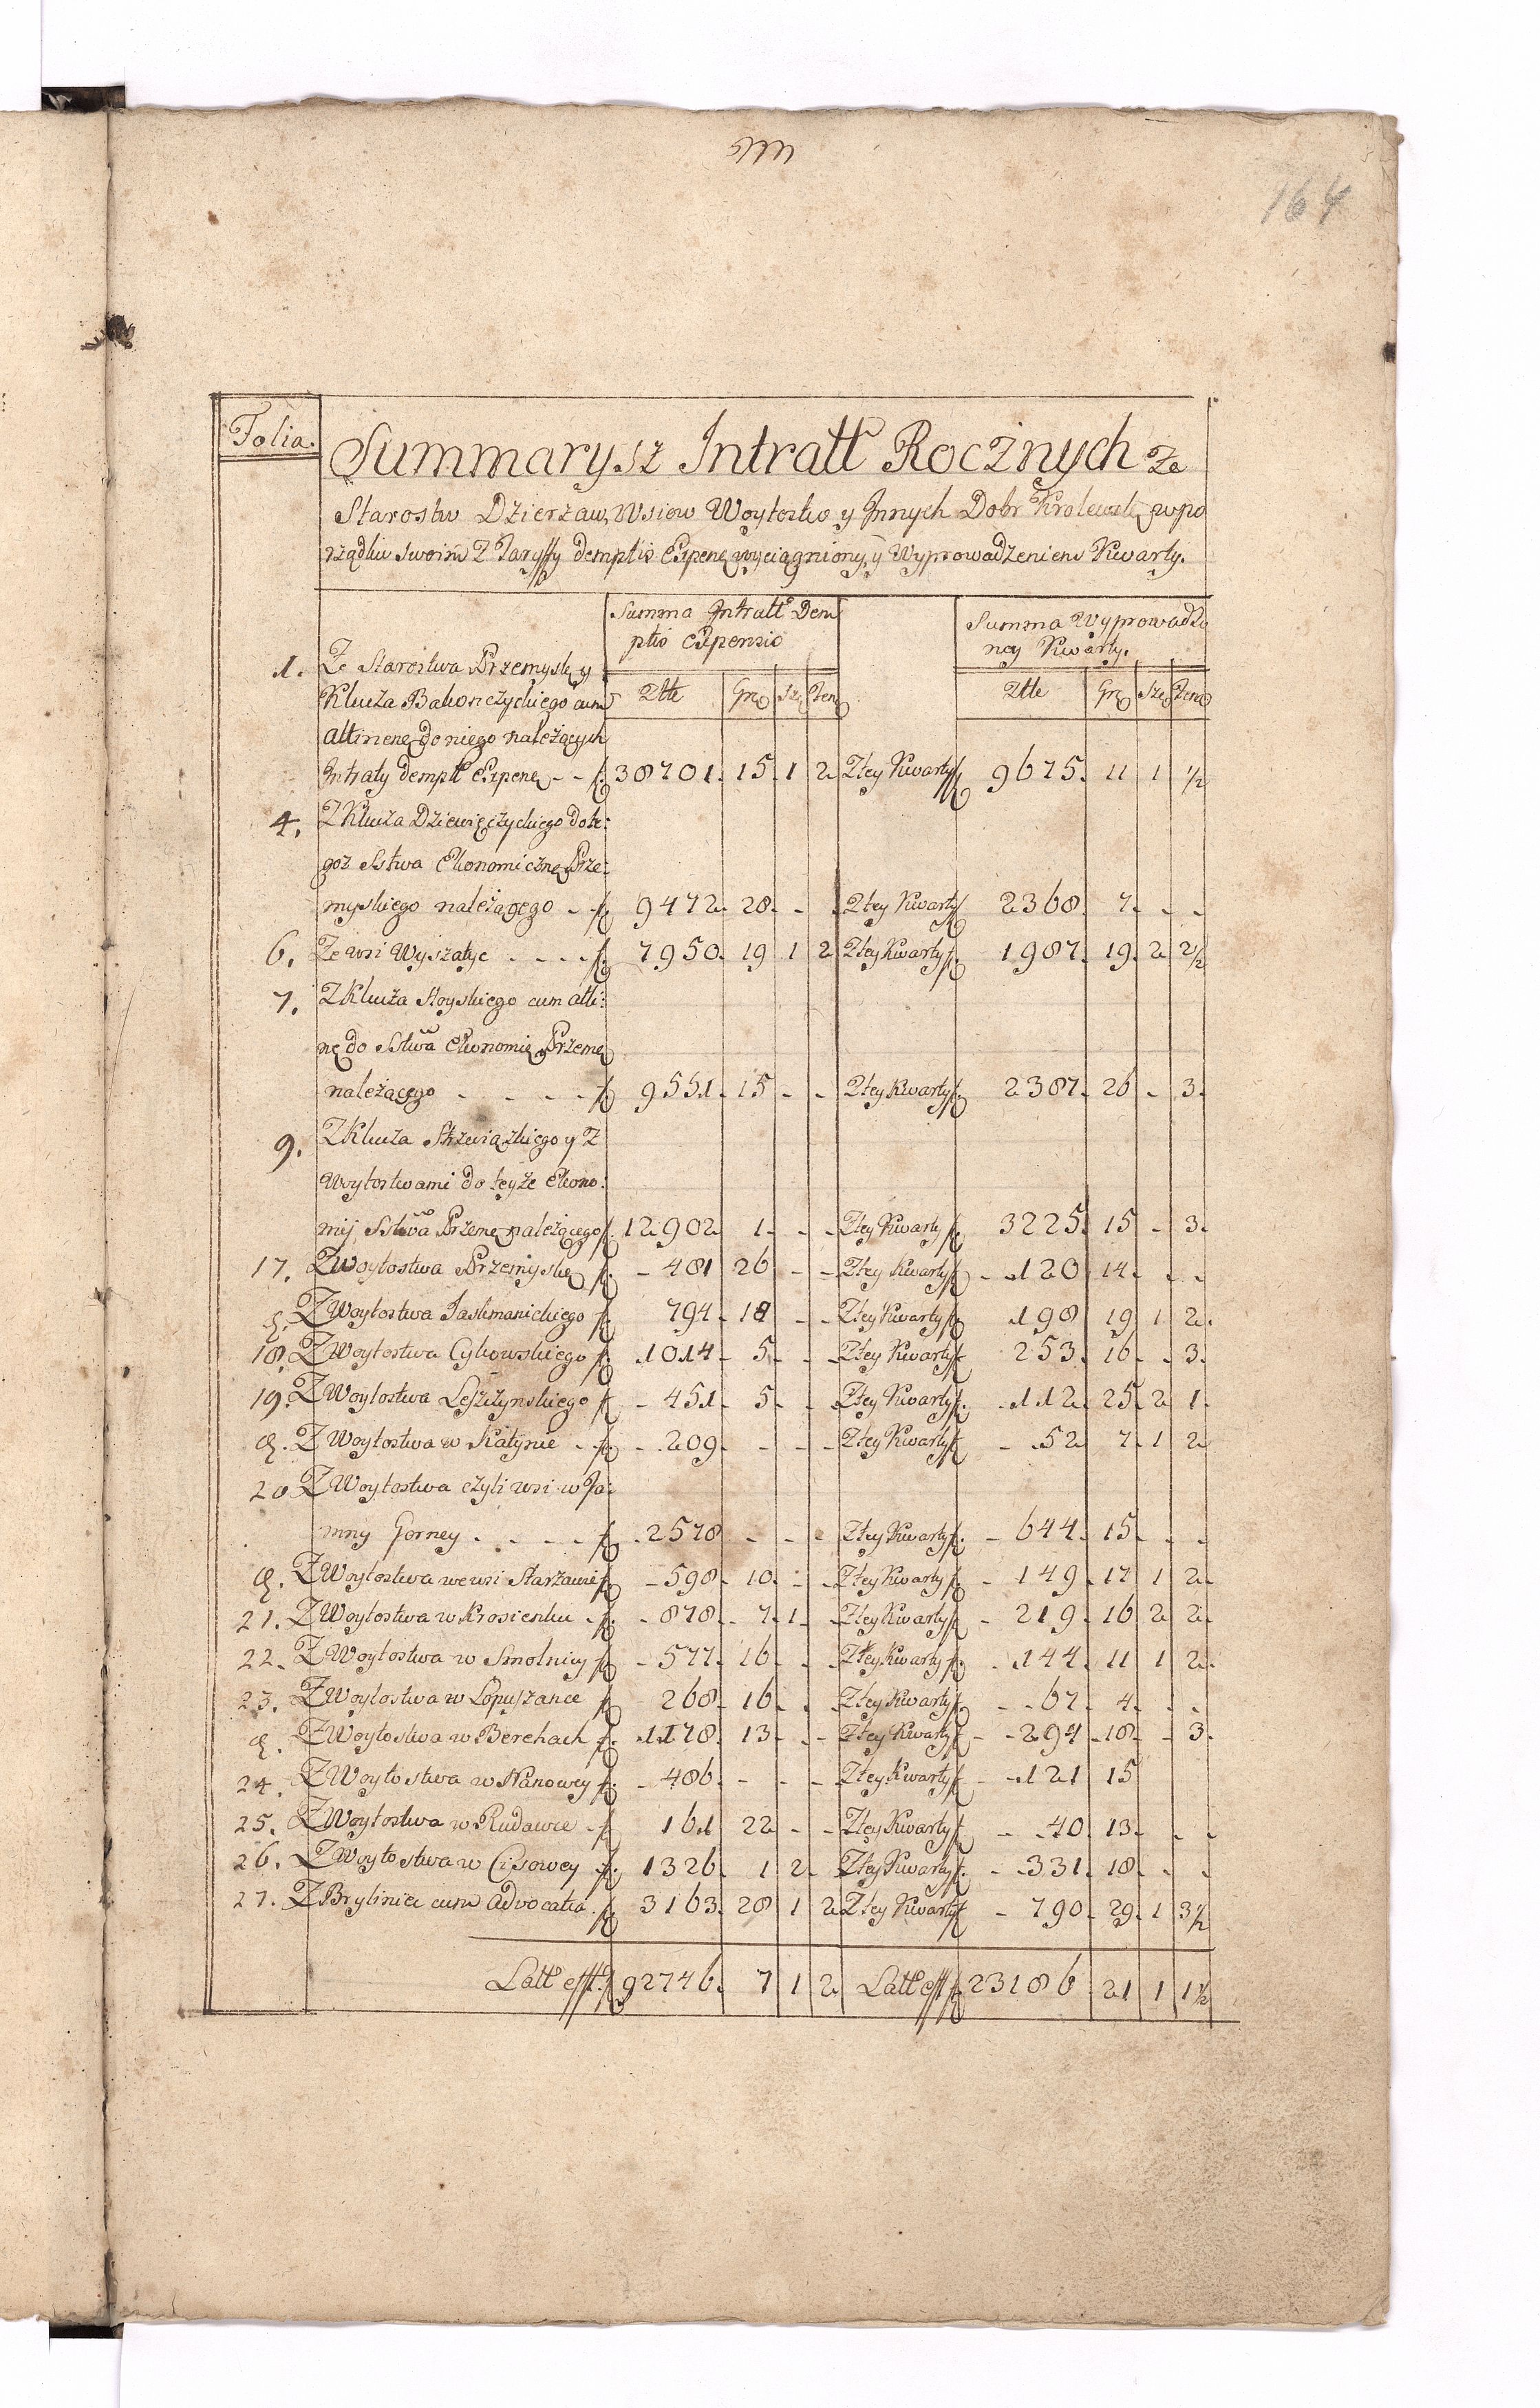 164
Folia.
Summarysz Intratt Rocznych Ze
Starostw Dzierzaw, Wsiow Woytostw y Innych Dobr Krolewsk. w po
rządku swoim Z Taryffy demptis Expens. wyciągniony, y Wyprowadzeniem Kwarty.
Summa Intratt Dem Summa Wyprowadzo
ptis Expensis ney Kwarty.
1. Ze Starostwa Przemysk. y
Klucza Bakonczyckiego cum Złłe Gr. Sze. Den. Złłe Gr. Sze. Den.
attinen. do niego należących
Intraty dempt. Expen. - - f. 38701. 15 1 2 Z tey Kwarty f. 9675. 11 1 1/2
4. Z Klucza Dziewięczyckiego do te:
goz Sstwa Ekonomiczne. Prze:
myskiego należącego - - f. 9472. 28. - - Z tey Kwarty f. 2368. 7. - -
6. Ze wsi Wyszatyc - - - - f. 7950. 19 1 2 Z tey Kwarty f. 1987. 19. 2 2 1/2
7. Z Klucza Stoyskiego cum atti:
ne. do Sstwa Ekonomie. Przeme.
należącego - - - - f. 9551. 15 - - Z tey Kwarty f. 2387. 26 - 3.
9. Z Klucza Skzewiązkiego y Z
Woytostwami do teyże Ekono:
mij Sstwa Przeme. należącego f. 12902 1. - - Z tey Kwarty f. 3225. 15 - 3.
17. Z Woytostwa Przemyske. f. - 481 26 - - Z tey Kwarty f. - 120 14. - -
&. Z Woytostwa Jasłmanickiego f. 794. 18 - - Z tey Kwarty f. 198 19 1 2.
18. Z Woytostwa Cykowskiego f. 1014. 5. - - Z tey Kwarty f. 253. 16 - 3.
19. Z Woytostwa Leszczynskiego f. - 451. 5 - - Z tey Kwarty f. - 112. 25. 2 1.
&. Z Woytostwa w Katynie - f. - 209. - - - Z tey Kwarty f. - 52 7. 1 2
20 Z Woytostwa czyli wsi w Ja:
mny Gorney - - - - f. - 2578 - - - Z tey Kwarty f. - 644. 15 - -
&. Z Woytostwa we wsi Starzawie f. - 598. 10. - - Z tey Kwarty f. - 149. 17 1 2.
21. Z Woytostwa w Krosienku - f. - 878. 7. 1 - Z tey Kwarty f. - 219. 16 2 2.
22. Z Woytostwa w Smolnicy f. - 577. 16. - - Z tey Kwarty f. - 144. 11 1 2.
23. Z Woytostwa w Łopuszance f. 268. 16 - - Z tey Kwarty f. - 67. 4. - -
&. Z Woytostwa w Berehach f. 1178. 13 - - Z tey Kwarty f. - 294. 18. - 3.
24. Z Woytostwa w Nanowey f. - 486. - - - Z tey Kwarty f. - 121 15
25. Z Woytostwa w Rudawce - f. 161 22 - - Z tey Kwarty f. - 40. 13. - -
26. Z Woytostwa w Cisowey f. 1326. 1 2. Z tey Kwarty f. - 331. 18. - -
27. Z Bryliniec cum Advocatia f. 3163. 28 1 2 Z tey Kwarty f. - 790. 29. 1 3 1/2
Latt efft. f. 92746. 7 1 2. Latt efft f. 23186 21 1 1 1/2